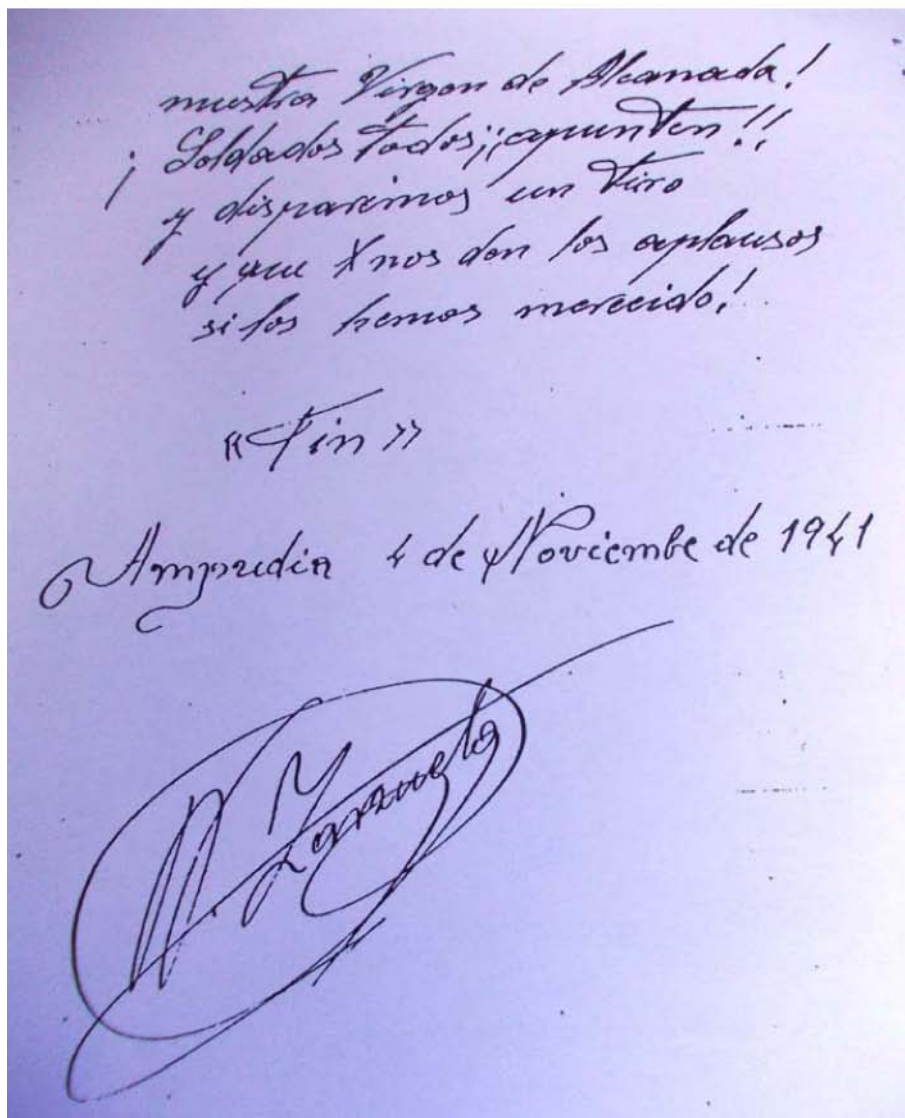 nuestra Virgen de Alconada!
¡Soldados todos ¡¡apunten!!
y disparemos un tiro
y que nos den los aplausos
si los hemos merecido!
«Fin»
Ampudia 4 de Noviembe de 1941
Zarzuelo